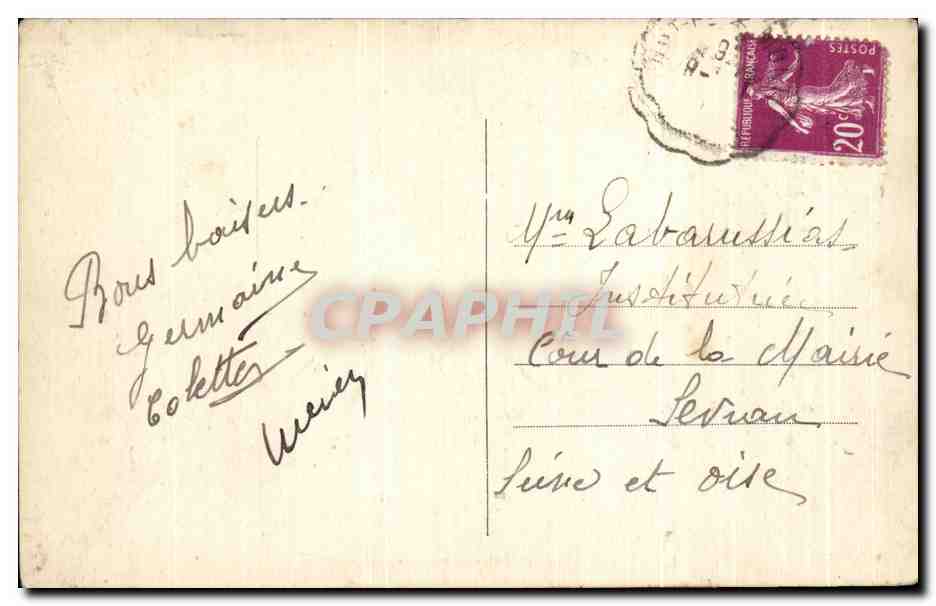 Bons baisers.
Germaine
Colette
CPAPHIL
REPUBLIQUE FRANÇAISE
POSTES
20c
Mme Labarussias
Institutrice
Cour de la Mairie
Sevran
Seine et Oise